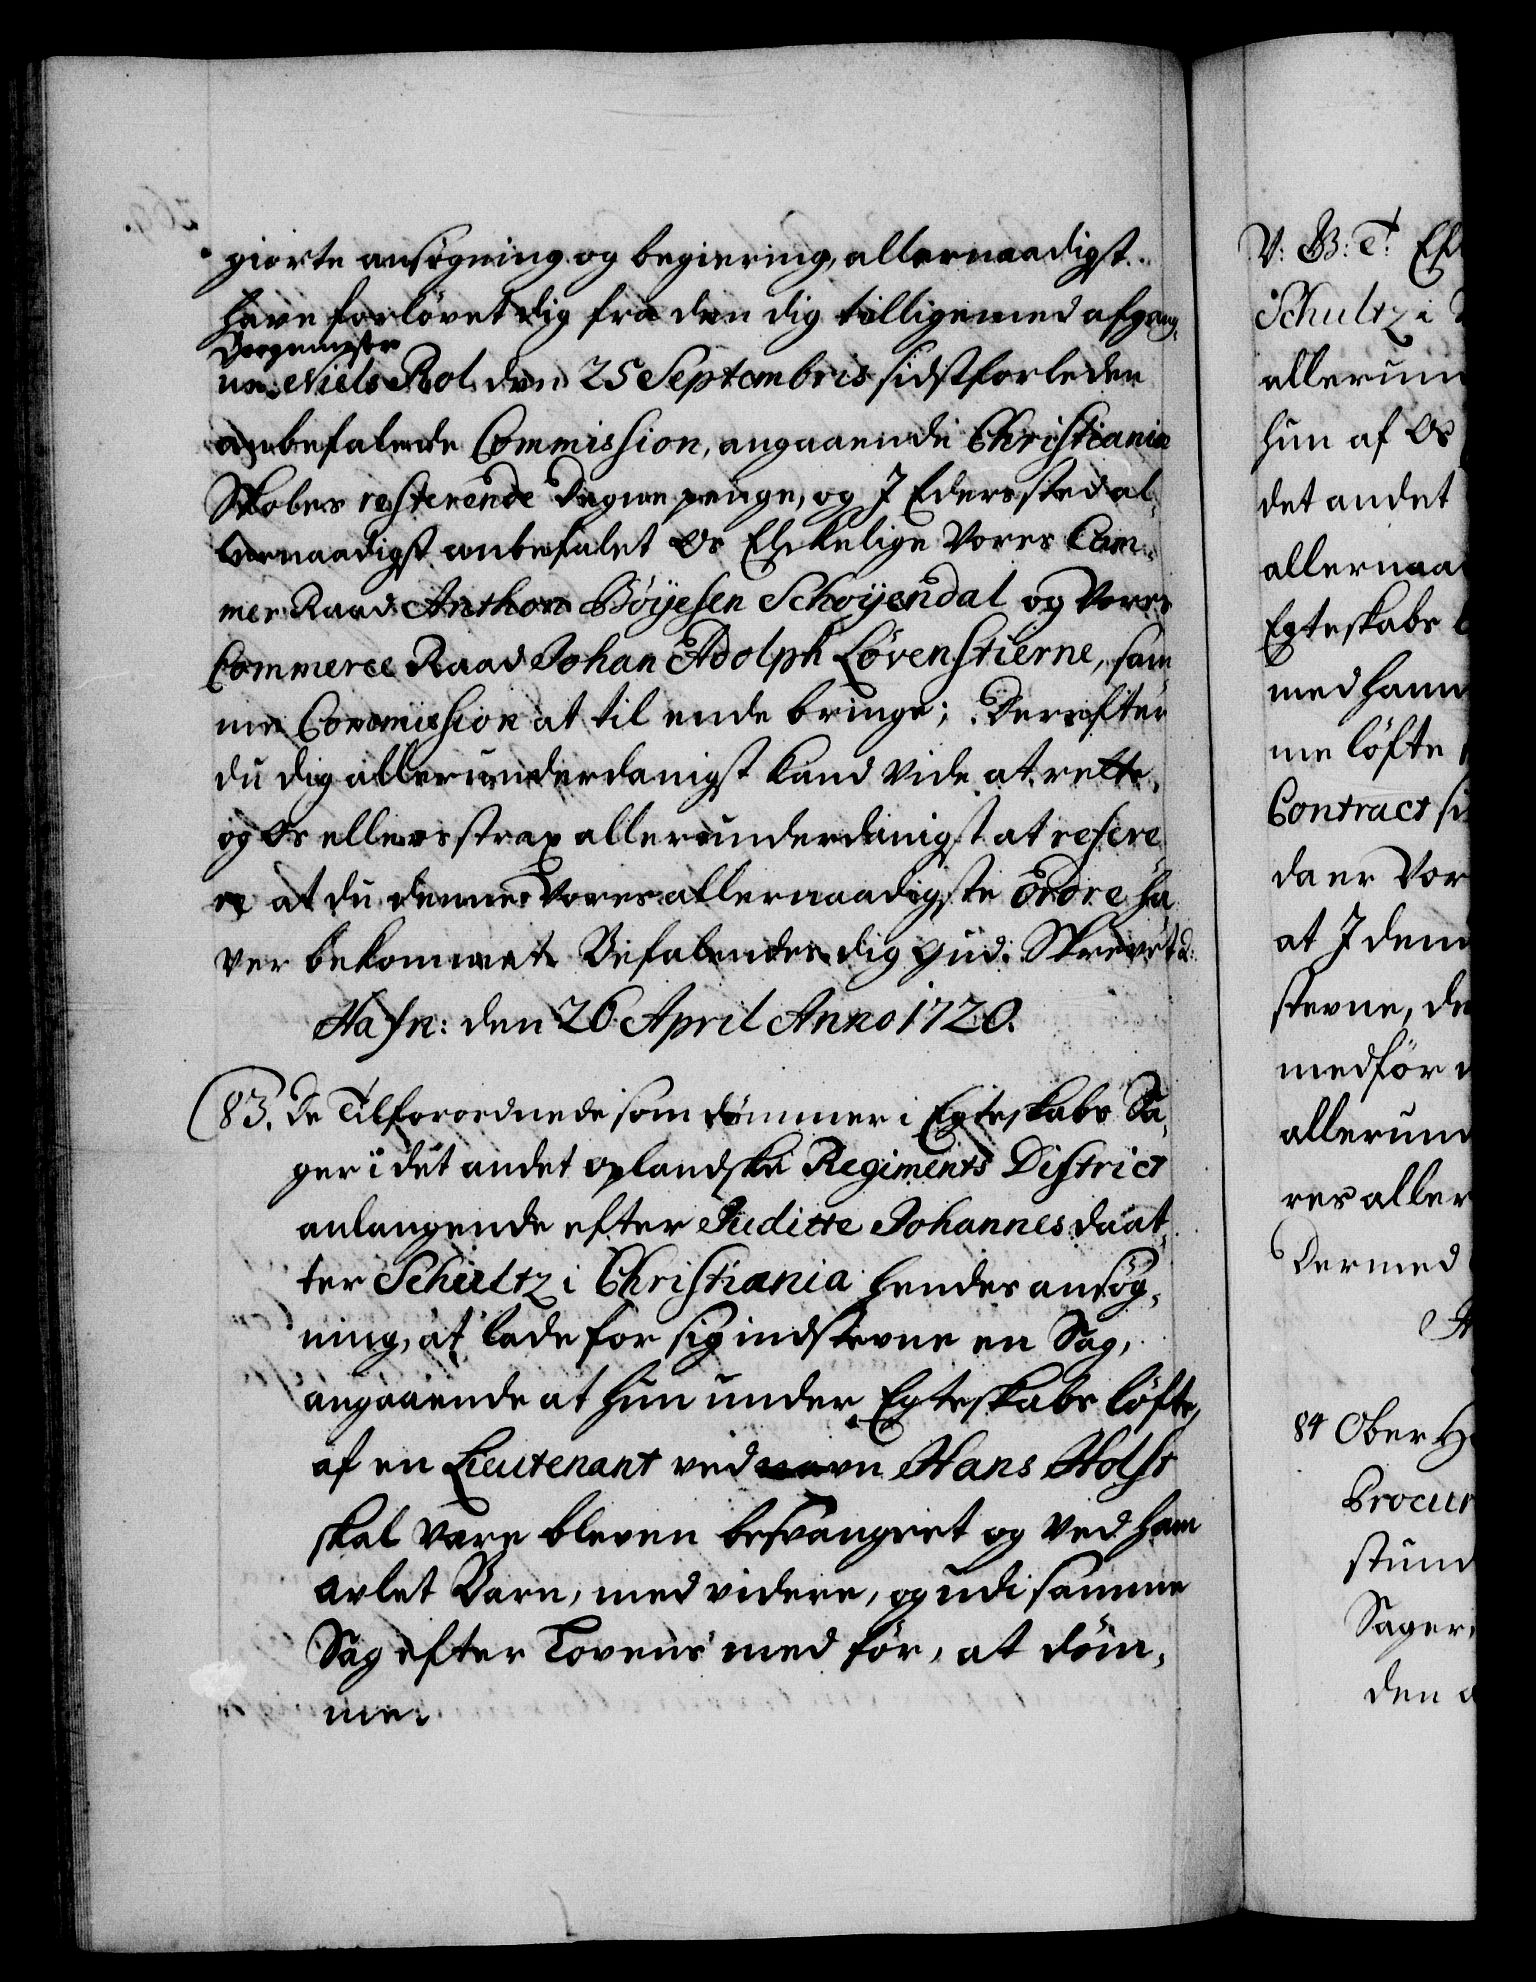 giorte ansögning og begiering, allernaadigst
have forlövet dig fra den dig tilligemed afgang-
Borgemester
ne Niels Bol den 25 Septembris sidstforleden
anbefalede Commission, angaaende Christiania
Skoles resterende Degne penge, og I Eders sted al-
lernaadigst anbefalet Os Elskelige Vores Cam-
mer Raad Anthon Böyesen Schoyendal og Vores
Commerce Raad Johan Adolph Lövenstierne, sam-
me Commission at til ende bringe; Derefter
du dig allerunderdanigst kand vide at rette,
og Os ellers strax allerunderdanigst at refere-
re at du denne Vores allernaadigste Ordre ha-
ver bekommet. Befalendes dig Gud. Skrevet d:
Hafn: den 26 April Anno 1720.
83. De Tilforordnede som dömmer i Egteskabs Sa-
ger i det andet oplandske Regiments District
anlangende efter Juditte Johannesdaat-
ter Schultz i Christiania hendes ansög-
ning, at lade for sig indstevne en Sag,
angaaende at hun under Egteskabs löfte,
af en Lieutenant ved navn Hans Holst
skal være bleven besvangret og ved ham
avlet Barn, med videre, og udi samme
Sag efter Lovens med för, at döm-
me.
V: B: T:
Schultz i
allerun
hun af Os
det andet
allernaa
Egteskabs
med ham
me löfte
Contract
da er Vor
at I dem
stevne, de
medför
allerund
res aller
Dermed
84 Ober H
Procur
stund
Sager
den